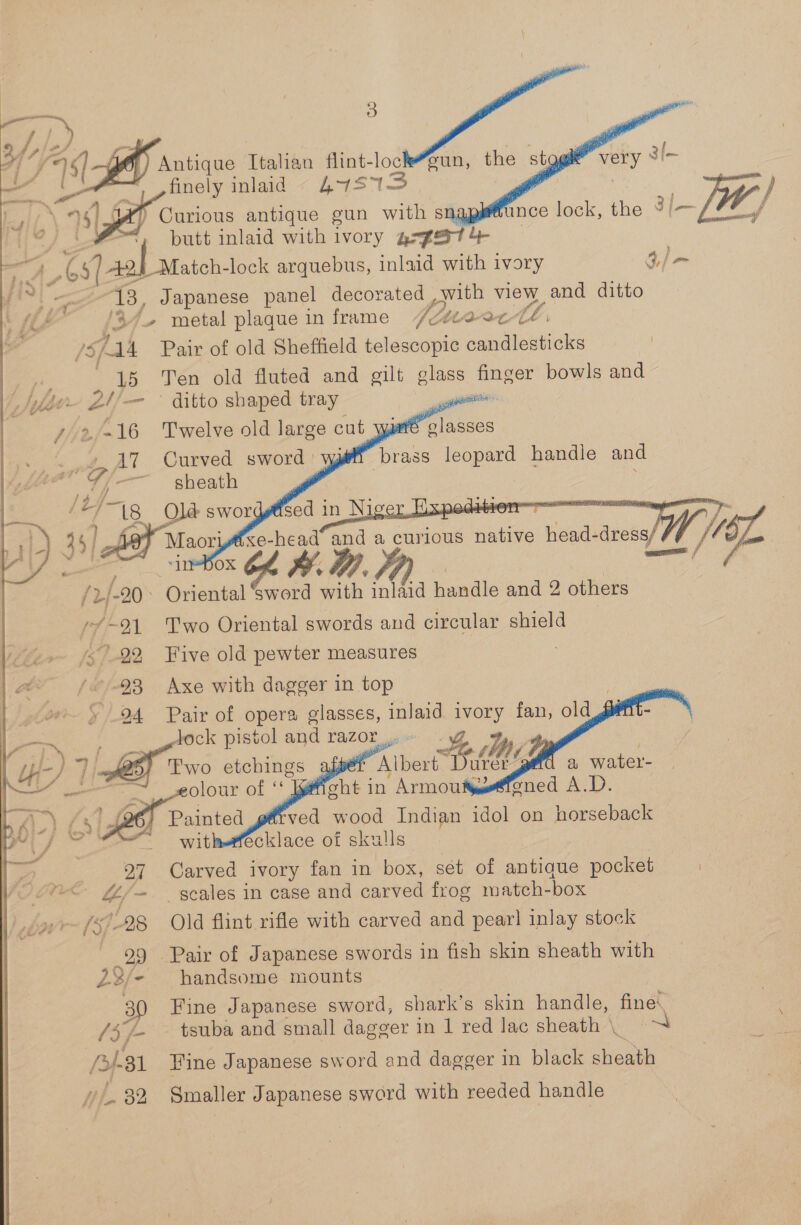 3
Antique Italian flint-lock gun, the stock very 3/-
finely inlaid 47513
Curious antique gun with snaphaunce lock, the 3/- W
butt inlaid with ivory
42 Match-lock arquebus, inlaid with ivory 3/-
13, Japanese panel decorated with view and ditto
metal plaque in frame
15/- 14 Pair of old Sheffield telescopic candlesticks
15 Ten old fluted and gilt glass finger bowls and
21/- ditto shaped tray
12/- 16 Twelve old large cut wine glasses
17 Curved sword with brass leopard handle and
sheath
12/- 18 Old sword used in Niger Expedition
35/ 19 Maori axe-head and a curious native head-dress W
in box
12/- 20 Oriental sword with inlaid handle and 2 others
21 Two Oriental swords and circular shield
22 Five old pewter measures
23 Axe with dagger in top
24 Pair of opera glasses, inlaid ivory fan, old flint-
lock pistol and razor
7/ 25 Two etchings after Albert Durer and a water-
colour of “ Knight in Armour” signed A.D.
26 Painted carved wood Indian idol on horseback
with necklace of skulls
27 Carved ivory fan in box, set of antique pocket
scales in case and carved frog match-box
15/- 28 Old flint rifle with carved and pearl inlay stock
29 Pair of Japanese swords in fish skin sheath with
handsome mounts
30 Fine Japanese sword, shark's skin handle, fine
15/- tsuba and small dagger in 1 red lac sheath
31 Fine Japanese sword and dagger in black sheath
32 Smaller Japanese sword with reeded handle